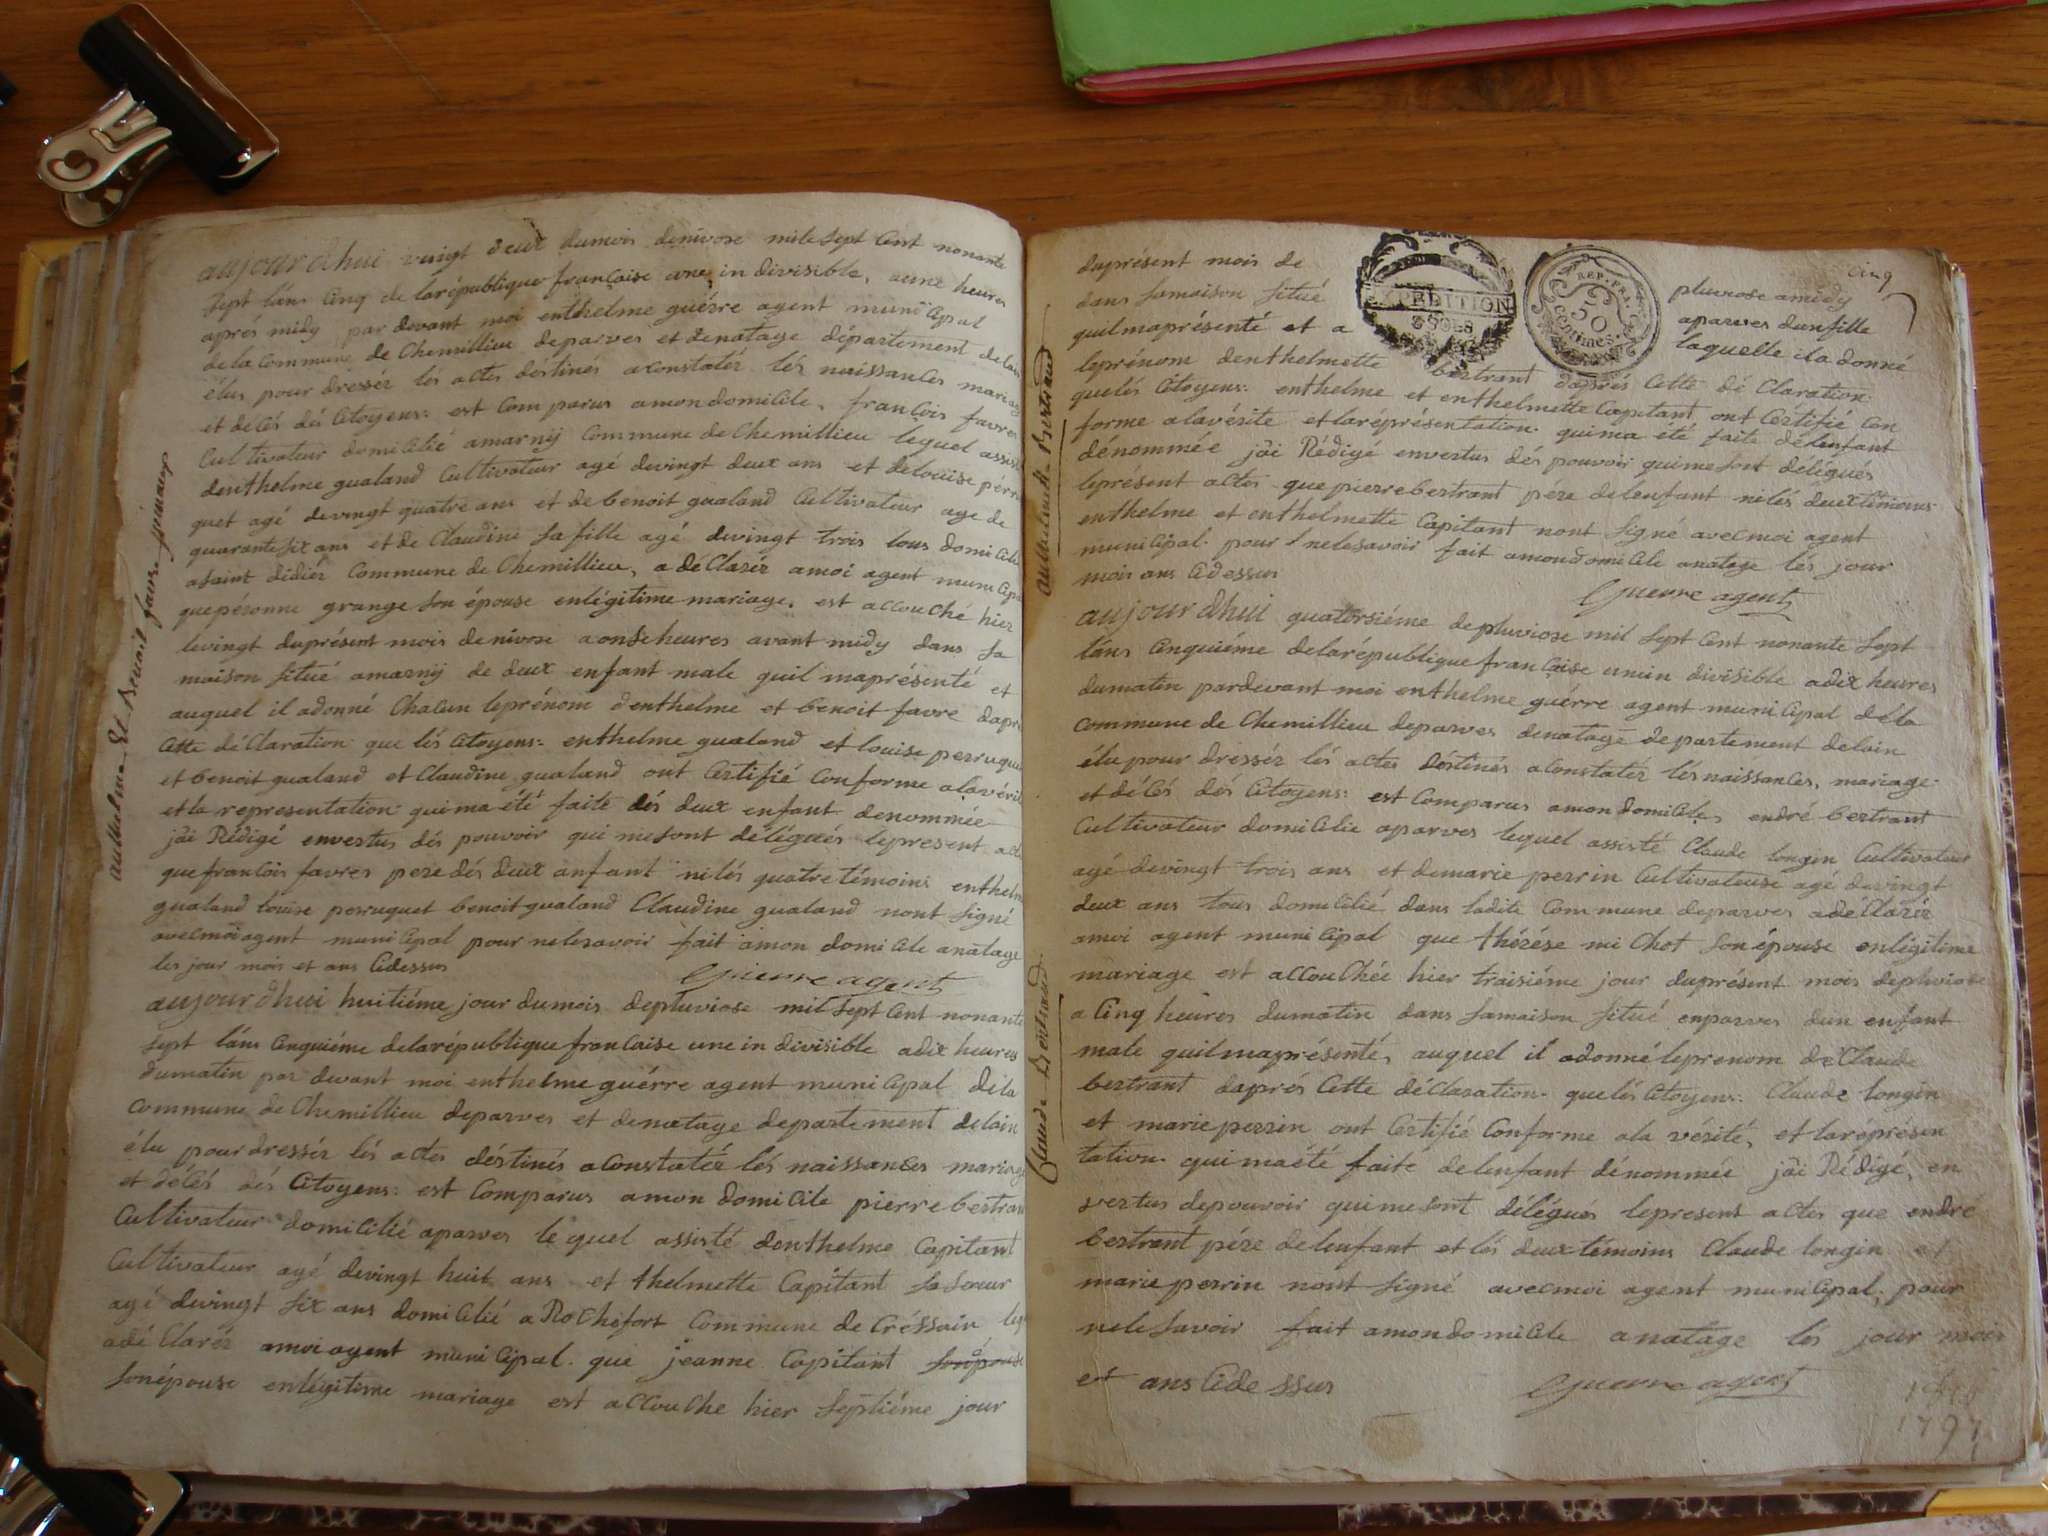 anthelme Et Benoit favre jumeaux
aujourdhui vingt deux dumois denivose mile sept Cent nonante
sept láns Cinq de larépublique francaise une, in divisible, aune heures
aprés midy par devant moi enthelme guérre agent municipal
dela Commune de Chemillieu deparves et denatage département delain
élus pour dressér lés actes déstinés aconstatér lés naissances mariage
et décés dés Citoyens: est Comparus amondomicile, francois favres
Cultivateur domicilié amarnij Commune de Chemillieu lequel assisté
denthelme gualand Cultivateur agé devingt deux ans et delouise pérru
quet agé devingt quatre ans et de benoit gualand Cultivateur age de
quarante six ans et de Claudine sa fille agé devingt trois tous domicilié
asaint didiér Commune de Chemillieu, adéClarér amoi agent municipal
que péronne grange son épouse enlégitime mariage, est accouché hier
levingt duprésent mois denivose aonse heures avant midy dans sa
maison situé amarnij de deux enfant male quil maprésenté et
auquel il adonné Chacun leprénom denthelme et benoit favre daprés
Cette déClaration que lés Citoyens: enthelme gualand et louise perruquet
et benoit gualand et Claudine gualand ont Certifié Conforme alavérité
et la representation quima été faite dés deux enfant denommée
jái Rédigé envertus dés pouvoir qui mesont délégués lepresent acte
que francois favres pere dés deux anfant nilés quatre témoins enthelme
gualand louise perruquet benoit gualand Claudine gualand nont signé
avecmoi agent municipal pour nelesavoir fait amon domicile anatage
les jour mois et ans Cidessus
guerre agent
aujourdhui huitiéme jour dumois depluviose mil sept Cent nonante
sept láns Cinquiéme delarépublique francaise une in divisible adix heures
dumatin par devant moi enthelme guérre agent municipal dela
Commune de Chemillieu deparves et denatage departement delain
élu pour dressér lés actes déstinés aConstatér lés naissances mariage
et décés dés Citoyens: est Comparus amon domicile pierre bertrant
Cultivateur domicilié aparves le quel assisté denthelme Capitant
Cultivateur agé devingt huit ans et thelmette Capitant sa soeur
agé devingt six ans domicilié a Rochefort Commune de Créssain
adéClarér amoi agent municipal. que jeanne Capitant son épouse
son épouse enlégitime mariage est accouche hier septiéme jour
anthelmette Bertrand
Cinq
duprésent mois de pluviose amidy
dans samaison situé aparves dunfille
quilmaprésenté et a laquelle ila donné
EXPEDITION
REP. FRA.
50
centimes.
leprénom denthelmette bertrant daprés Cette déClaration
quelés Citoyens: enthelme et enthelmette Capitant ont Certifié Con
forme alavérite et laréprésentation quima été faite delenfant
dénommée jái Rédigé envertus dés pouvoir quimesont délégués
leprésent actes que pierre bertrant pére delenfant nelés deux témoins
enthelme et enthelmette Capitant nont signé avecmoi agent
municipal pour nelesavoir fait amondomicile anatage lés jour
mois ans Cidessus
guerre agent
Claude Bertrand.
aujourdhui quatorsiéme depluviose mil sept Cent nonante sept
láns Cinquiéme delarépublique francaise unein divisible adix heures
dumatin pardevant moi enthelme guérre agent municipal déla
Commune de Chemillieu deparves denatage departement delain
élu pour dressér lés actes déstinés aConstatér lés naissances, mariage
et décés dés Citoyens: est Comparus amondomicile, endré bertrant
Cultivateur domicilie aparves lequel assisté Claude longin Cultivateur
agé devingt trois ans et demarie perrin Cultivateuse agé devingt
deux ans tous domicilié dans ladite Commune deparves adéClarér
amoi agent municipal que thérése michot son épouse enlégitime
mariage est accouchée hier traisiéme jour duprésent mois depluviose
a Cinq heures dumatin dans samaison situé enparves dun enfant
male quilmaprésenté, auquel il adonné leprenom deClaude
bertrant daprés Cette déClaration quelés Citoyens: Claude longin
et marie perrin ont Certifié Conforme ala vérité, et laréprésen
tation quimaété faité delenfant dénommée jái Rédigé, en
vertus depouvoir quimesont délégués lepresent actes que endré
bertrant pére delenfant et lés deux témoins Claude longin et
marie perrin nont signé avecmoi agent municipal, pour
nelesavoir fait amondomicile anatage lés jour mois
et ans Cidessus
guerre agent
1797